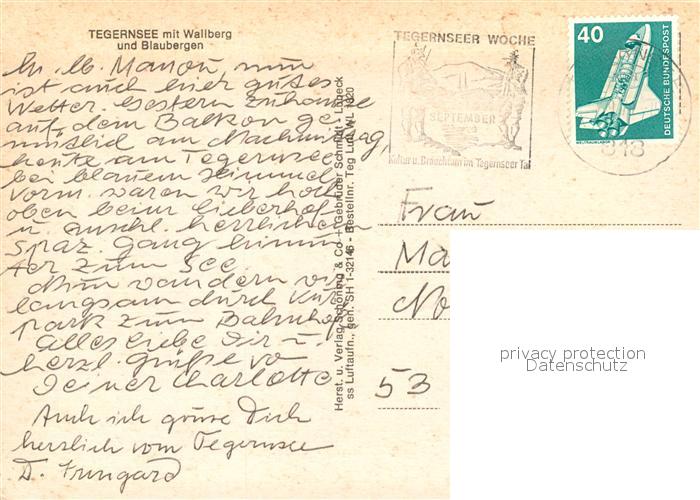 TEGERNSEE mit Wallberg
und Blaubergen
M. lb. Manon, nun
ist auch hier gutes
Wetter. Gestern zuhause
auf dem Balkon ge-
mütlich am Nachmittag,
heute am Tegernsee
bei blauem Himmel.
Vorm. waren wir hoch
oben beim Lieberhof
u. anschl. herrlichen
Spaz. gang hinun-
ter zum See.
Nun wandern wir
langsam durch Kur-
park zum Bahnhof.
Alles liebe Dir u.
herzl. Grüße v.
Deiner Charlotte.
Auch ich grüße Dich
herzlich vom Tegernsee
D. Irmgard
Herst. u. Verlag Schöning & Co + Gebrüder Schmidt - Lübeck
ss Luftaufn., gen. SH 1-32146 - Bestellnr. Teg Luft NL 1820
TEGERNSEER WOCHE
SEPTEMBER
Kultur u. Brauchtum im Tegernseer Tal
318
40
DEUTSCHE BUNDESPOST
WELTRAUMLABOR
Frau
Ma
No
53
privacy protection
Datenschutz